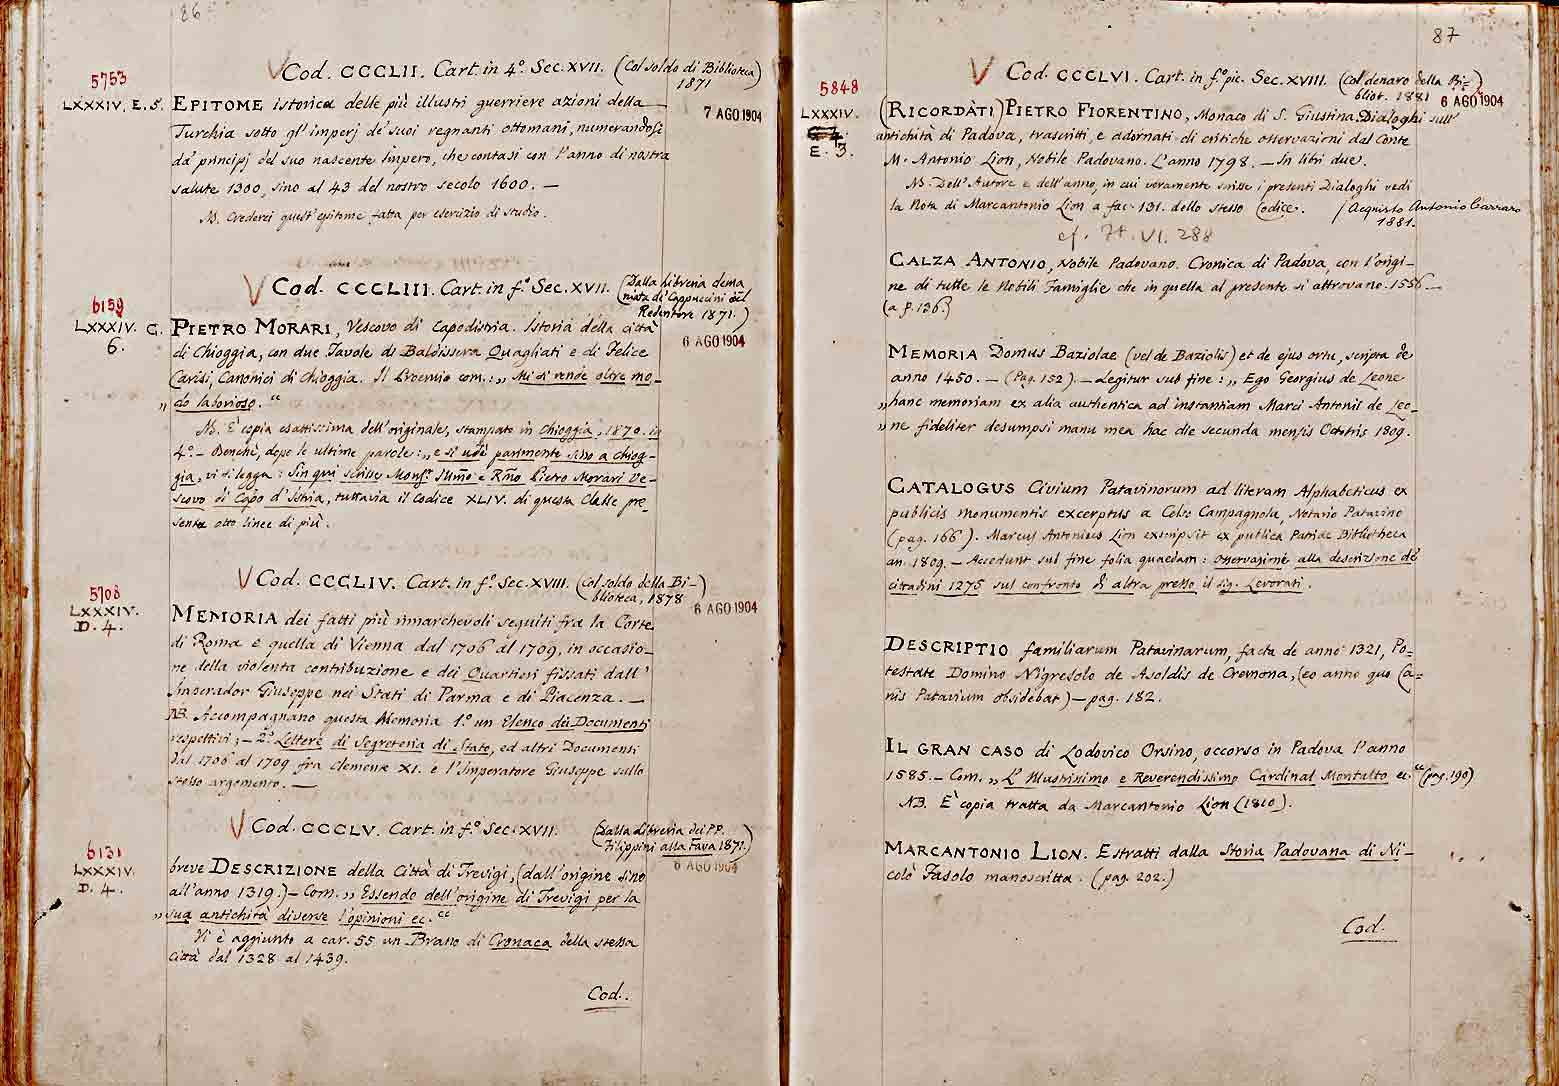 86
V Cod. CCCLII. Cart. in 4.º Sec. XVII. (Col soldo di Biblioteca)
1871
5753
LXXXIV. E. 5.
7 AGO 1904
EPITOME istorica delle più illustri guerriere azioni della
Turchia sotto gl'imperj de' suoi regnanti ottomani, numerandosi
da' principj del suo nascente Impero, che contasi con l'anno di nostra
salute 1300, sino al 43 del nostro secolo 1600. —
NB. Crederei quest'epitome fatta per esercizio di studio.
V Cod. CCCLIII. Cart. in f.º Sec. XVII. (Dalla libreria dema
niata di Cappuccini del
Redentore 1871.)
6159
LXXXIV. C.
6.
6 AGO 1904
PIETRO MORARI, Vescovo di Capodistria. Istoria della città
di Chioggia, con due Tavole di Baldissera Quagliati e di Felice
Carisi, Canonici di Chioggia. Il Proemio com.: „ Mi si rende oltre mo-
„ do laborioso. “
NB. È copia esattissima dell'originale, stampato in Chioggia, 1870. in
4.º – Benchè, dopo le ultime parole: „ e si udì parimente sino a Chiog-
gia, vi si legga: Sin qui scrisse Mons.r Illmo e Rmo Pietro Morari Ve-
scovo di Capo d'Istria, tuttavia il codice XLIV. di questa Classe pre-
senta otto linee di più.
V Cod. CCCLIV. Cart. in f.º Sec. XVIII. (Col soldo della Bi-)
blioteca, 1878
5708
LXXXIV.
D. 4.
6 AGO 1904
MEMORIA dei fatti più rimarchevoli seguiti fra la Corte
di Roma e quella di Vienna dal 1706 al 1709, in occasio-
ne della violenta contribuzione e dei Quartieri fissati dall'
Imperador Giuseppe nei Stati di Parma e di Piacenza. —
NB. Accompagnano questa Memoria 1.º un Elenco dei Documenti
respettivi; – 2.º Lettere di Segreteria di Stato, ed altri Documenti
dal 1706 al 1709 fra Clemente XI. e l'Imperatore Giuseppe sullo
stesso argomento. —
V Cod. CCCLV. Cart. in f.º Sec. XVII. (Dalla libreria dei PP.
Filippini alla Fava 1871.)
6131
LXXXIV.
D. 4.
6 AGO 1904
breve DESCRIZIONE della Città di Trevigi, (dall'origine sino
all'anno 1319.) – Com. „ Essendo dell'origine di Trevigi per la
„ sua antichità diverse l'opinioni ec. “
Vi è aggiunto a car. 55 un Brano di Cronaca della stessa
città dal 1328 al 1439.
Cod.
87
V Cod. CCCLVI. Cart. in f.º pic. Sec. XVIII. (Col denaro della Bi-
bliot. 1881
5848
LXXXIV.
E. 3.
6 AGO 1904
(RICORDÀTI) PIETRO FIORENTINO, Monaco di S. Giustina. Dialoghi sull'
antichità di Padova, trascritti e adornati di critiche osservazioni dal Conte
M. Antonio Lion, Nobile Padovano. L'anno 1798. – In libri due.
NB. Dell'Autore e dell'anno, in cui veramente scrisse i presenti Dialoghi vedi
la Nota di Marcantonio Lion a fac. 131. dello stesso Codice. / Acquisto Antonio Carraro
1881.
cf. It. VI. 288
CALZA ANTONIO, Nobile Padovano. Cronica di Padova, con l'origi-
ne di tutte le Nobili Famiglie che in quella al presente si attrovano. 1556 —
(a p. 136.)
MEMORIA Domus Baziolae (vel de Baziolis) et de ejus ortu, scripta de
anno 1450. – (Pag. 152). – Legitur sub fine: „ Ego Georgius de Leone
„ hanc memoriam ex alia authentica ad instantiam Marci Antonii de Leo-
„ ne fideliter desumpsi manu mea hac die secunda mensis Octobris 1809.
CATALOGUS Civium Patavinorum ad literam Alphabeticus ex
publicis monumentis excerptus a Celso Campagnola, Notario Patavino
(pag. 166). Marcus Antonius Lion exscripsit ex publica Patriae Bibliotheca
an. 1809. – Accedunt sub fine folia quaedam: Osservazione alla descrizione de'
cittadini 1275 sul confronto di altra presso il sig. Levorati.
DESCRIPTIO familiarum Patavinarum, facta de anno 1321, Po-
testate Domino Nigresolo de Asoldis de Cremona, (eo anno quo Ca-
nis Patavium obsidebat) – pag. 182.
IL GRAN CASO di Lodovico Orsino, occorso in Padova l'anno
1585. – Com. „ L'Illustrissimo e Reverendissimo Cardinal Montalto ec. “ (pag. 190)
NB. È copia tratta da Marcantonio Lion (1810).
MARCANTONIO LION. Estratti dalla Storia Padovana di Ni-
colò Fasolo manoscritta. (pag. 202.)
Cod.